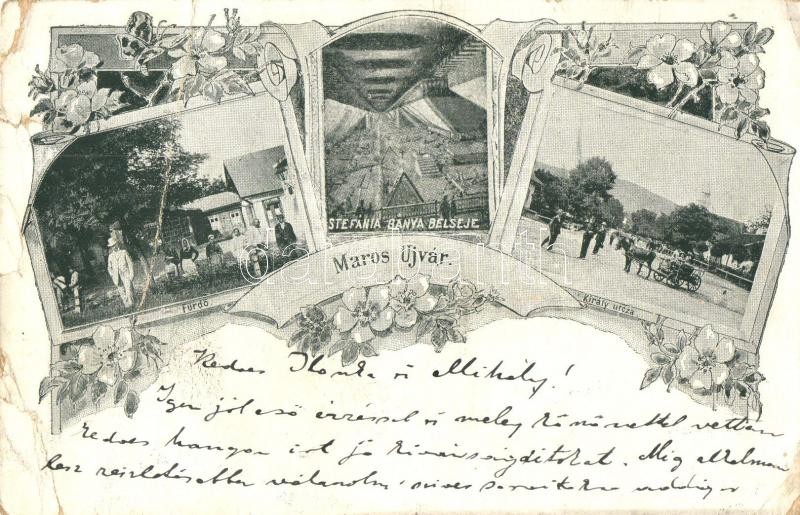 STEFÁNIA-BÁNYA BELSEJE
Maros Ujvár.
Fürdő
Király utcza
Kedves Ilonka és Mihály!
Igen jól eső érzéssel és meleg köszönettel vettem
kedves hangon írt jó kívánságaitokat. Míg alkalmam
lesz részletesebben válaszolni